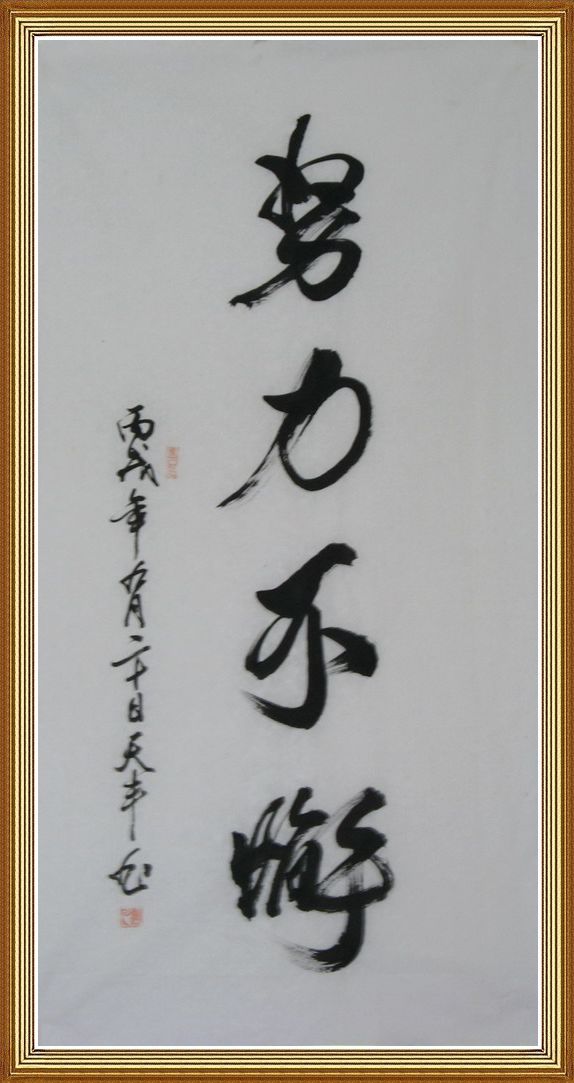 努力不懈
丙戌年九月二十日天丰书